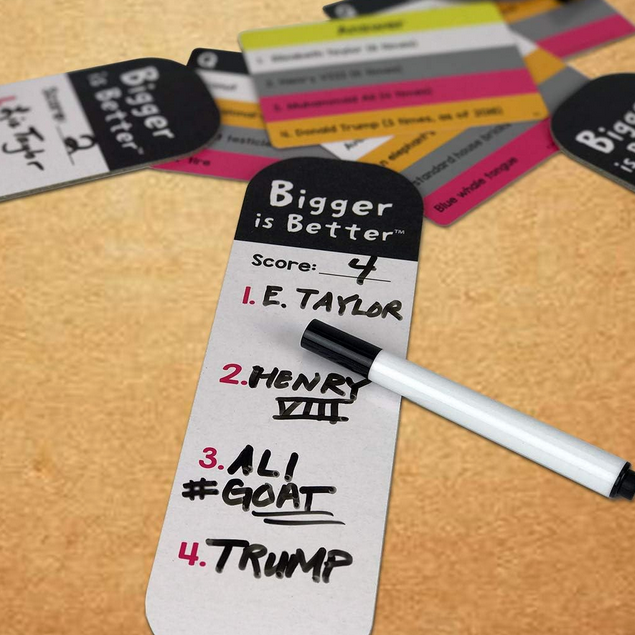 Answer
1. Elizabeth Taylor (8 times)
2. Henry VIII (6 times)
3. Muhammad Ali (4 times)
4. Donald Trump (3 times, as of 2018)
Bigger
is Better™
Score: 2
Taylor
an elephant's
standard house brick
Blue whale tongue
Bigger
is
Bigger
is Better™
Score: 4
1. E. TAYLOR
2. HENRY
VIII
3. ALI
#GOAT
4. TRUMP